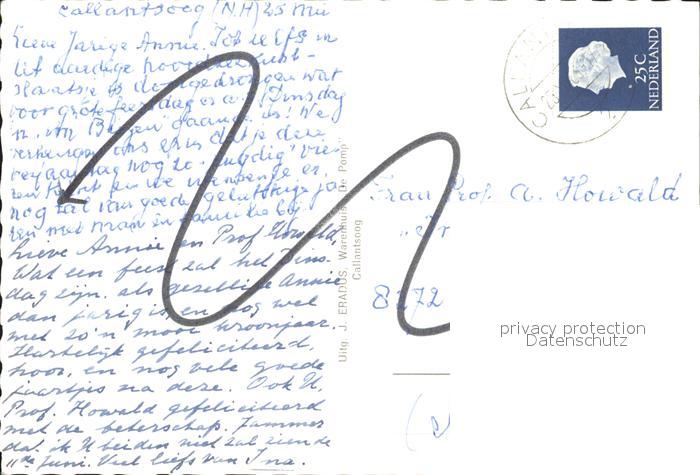 Callantsoog (N.H) 25 Mei
Lieve Jarige Annie. Tot zelfs in
dit aardige noordzee kust-
plaatsje is doorgedrongen wat
voor grote feestdag er a.s. Dinsdag
in "Am Bergen" gaande is! We
ver ons erin dat je deze
nog zo "
nog tal van goede gelukkige ja-
ren met man en familie bij!
Lieve Annie en Prof Howald,
Wat een feest zal het Dins-
dag zijn, als gezellige Annie
dan jarig is en nog wel
met zo'n mooi kroonjaar.
Hartelijk gefeliciteerd,
hoor, en nog vele goede
jaartjes na deze. Ook U,
Prof. Howald gefeliciteerd
met de beterschap. Jammer
dat ik U beiden niet zal zien de
11de Juni. Veel liefs van Ina.
Uitg. J. ERADUS, Warenhuis "De Pomp"
Callantsoog
CALLAN
25 C
NEDERLAND
Frau Prof. A. Howald
8272
privacy protection
Datenschutz